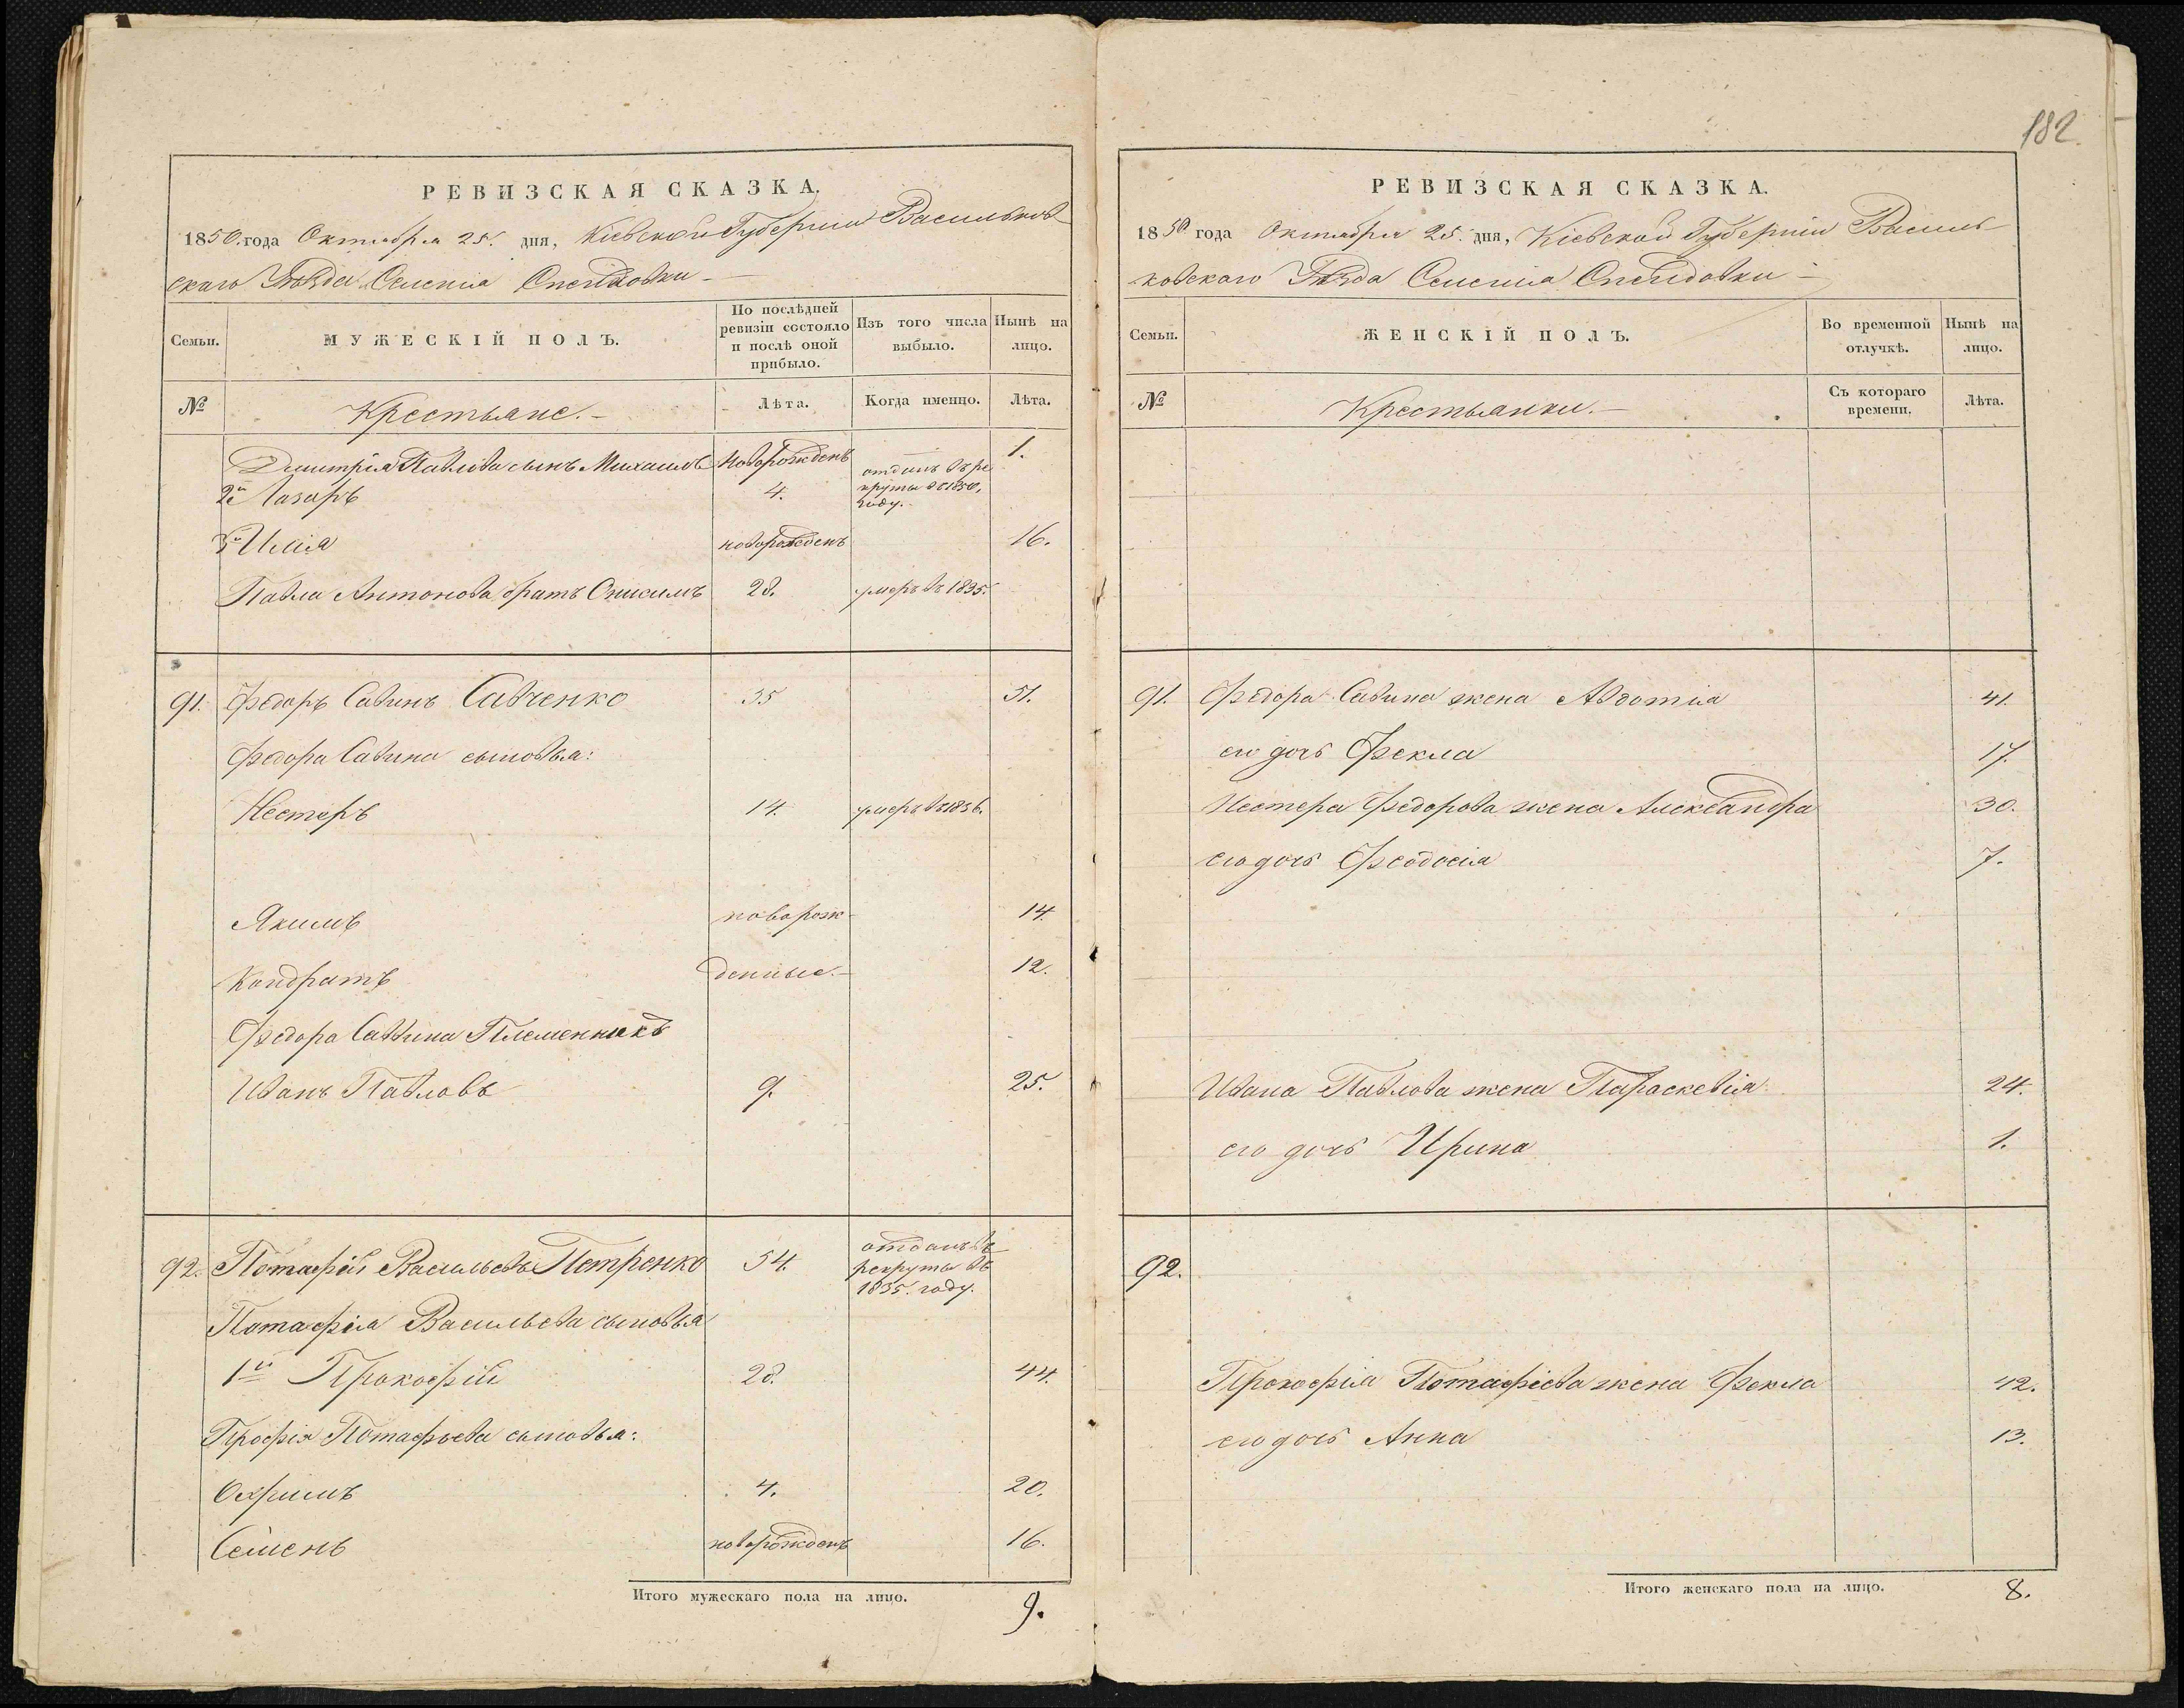 182.
РЕВИЗСКАЯ СКАЗКА.
1850. года Октября 25. дня, Кіевской Губерніи Васильков-
скаго Уѣзда Селенія
Семьи.
МУЖЕСКІЙ ПОЛЪ.
По послѣдней ревизіи состояло и послѣ оной прибыло.
Изъ того числа выбыло.
Нынѣ на лицо.
№
Крестьяне.-
Лѣта.
Когда именно.
Лѣта.
Димитрія Павлова сынъ Михаилъ новорожденъ 1.
2й Лазарь 4. отданъ въ ре
круты въ 1850,
году.
3й Илія новорожденъ 16.
Павла Антонова братъ Онисимъ 28. умеръ въ 1835.
91. Федоръ Савинъ Савченко 35 51.
Федора Савина сыновья:
Нестеръ 14. умеръ въ 1836.
Якимъ новорож- 14.
Кондратъ денные.- 12.
Федора Савина Племенникъ
Иванъ Павловъ 9. 25.
92. Потафій Васильевъ Петренко 54. отданъ въ
рекруты въ
1835. году.
Потафія Васильева сыновья
1й Прокофій 28. 44.
Профія Потафьева сыновья:
Охримъ 4. 20.
Семенъ новорожденъ 16.
Итого мужескаго пола на лицо. 9.
РЕВИЗСКАЯ СКАЗКА.
1850 года Октября 25. дня, Кіевской Губерніи Василь-
ковскаго Уѣзда Селенія
Семьи.
ЖЕНСКІЙ ПОЛЪ.
Во временной отлучкѣ.
Нынѣ на лицо.
№
Крестьянки.-
Съ котораго времени.
Лѣта.
91. Федора Савина жена Авдотія 41.
его дочь Фекла 17.
Нестера Федорова жена Александра 30.
его дочь Феодосія 7.
Ивана Павлова жена Параскевія 24.
его дочь Ирина 1.
92.
Прокофія Потафіева жена Фекла 42.
его дочь Анна 13.
Итого женскаго пола на лицо. 8.